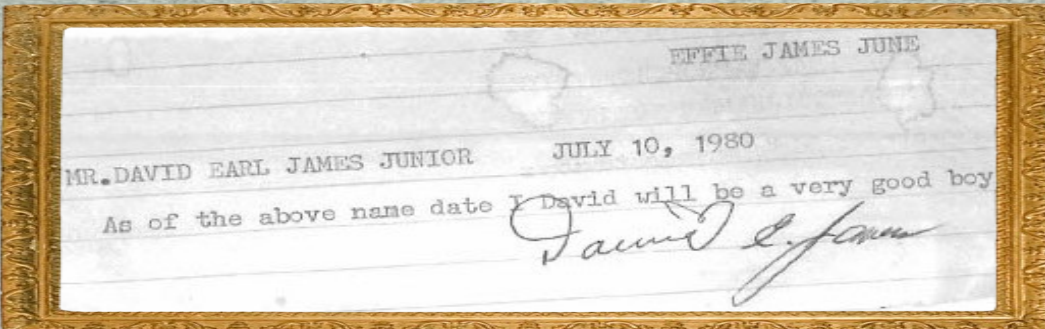 EFFIE JAMES JUNE
MR.DAVID EARL JAMES JUNIOR JULY 10, 1980
As of the above name date I David will be a very good boy
David E. James